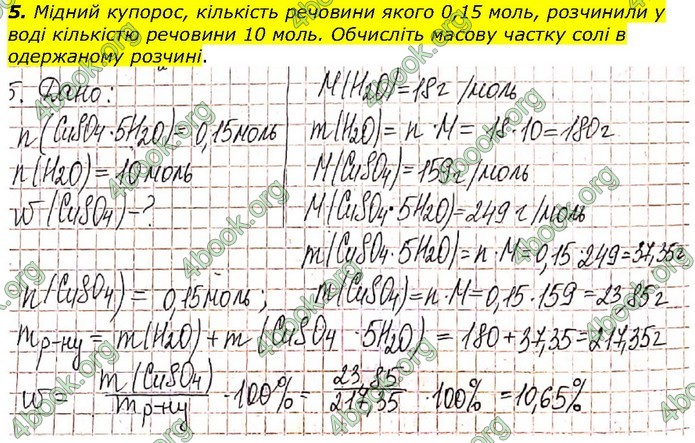 5. Мідний купорос, кількість речовини якого 0,15 моль, розчинили у
воді кількістю речовини 10 моль. Обчисліть масову частку солі в
одержаному розчині.
5. Дано:
n(CuSO4·5H2O)=0,15моль
n(H2O)=10моль
w(CuSO4)-?
M(H2O)=18г/моль
m(H2O)= n·M= 18·10=180г
M(CuSO4)=159г/моль
M(CuSO4·5H2O)=249 г/моль
m(CuSO4·5H2O)=n·M=0,15·249=37,35г
n(CuSO4)= 0,15моль; m(CuSO4)=n·M=0,15·159=23,85г
mр-ну = m(H2O)+m(CuSO4·5H2O) = 180+37,35=217,35г
w= m(CuSO4)/mр-ну ·100%= 23,85/217,35 ·100%=10,65%
4book.org